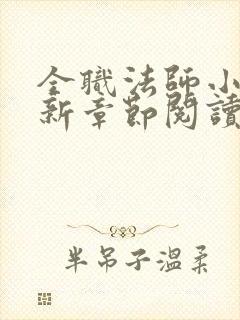 全職法師小
新章節閱讀
半吊子溫柔